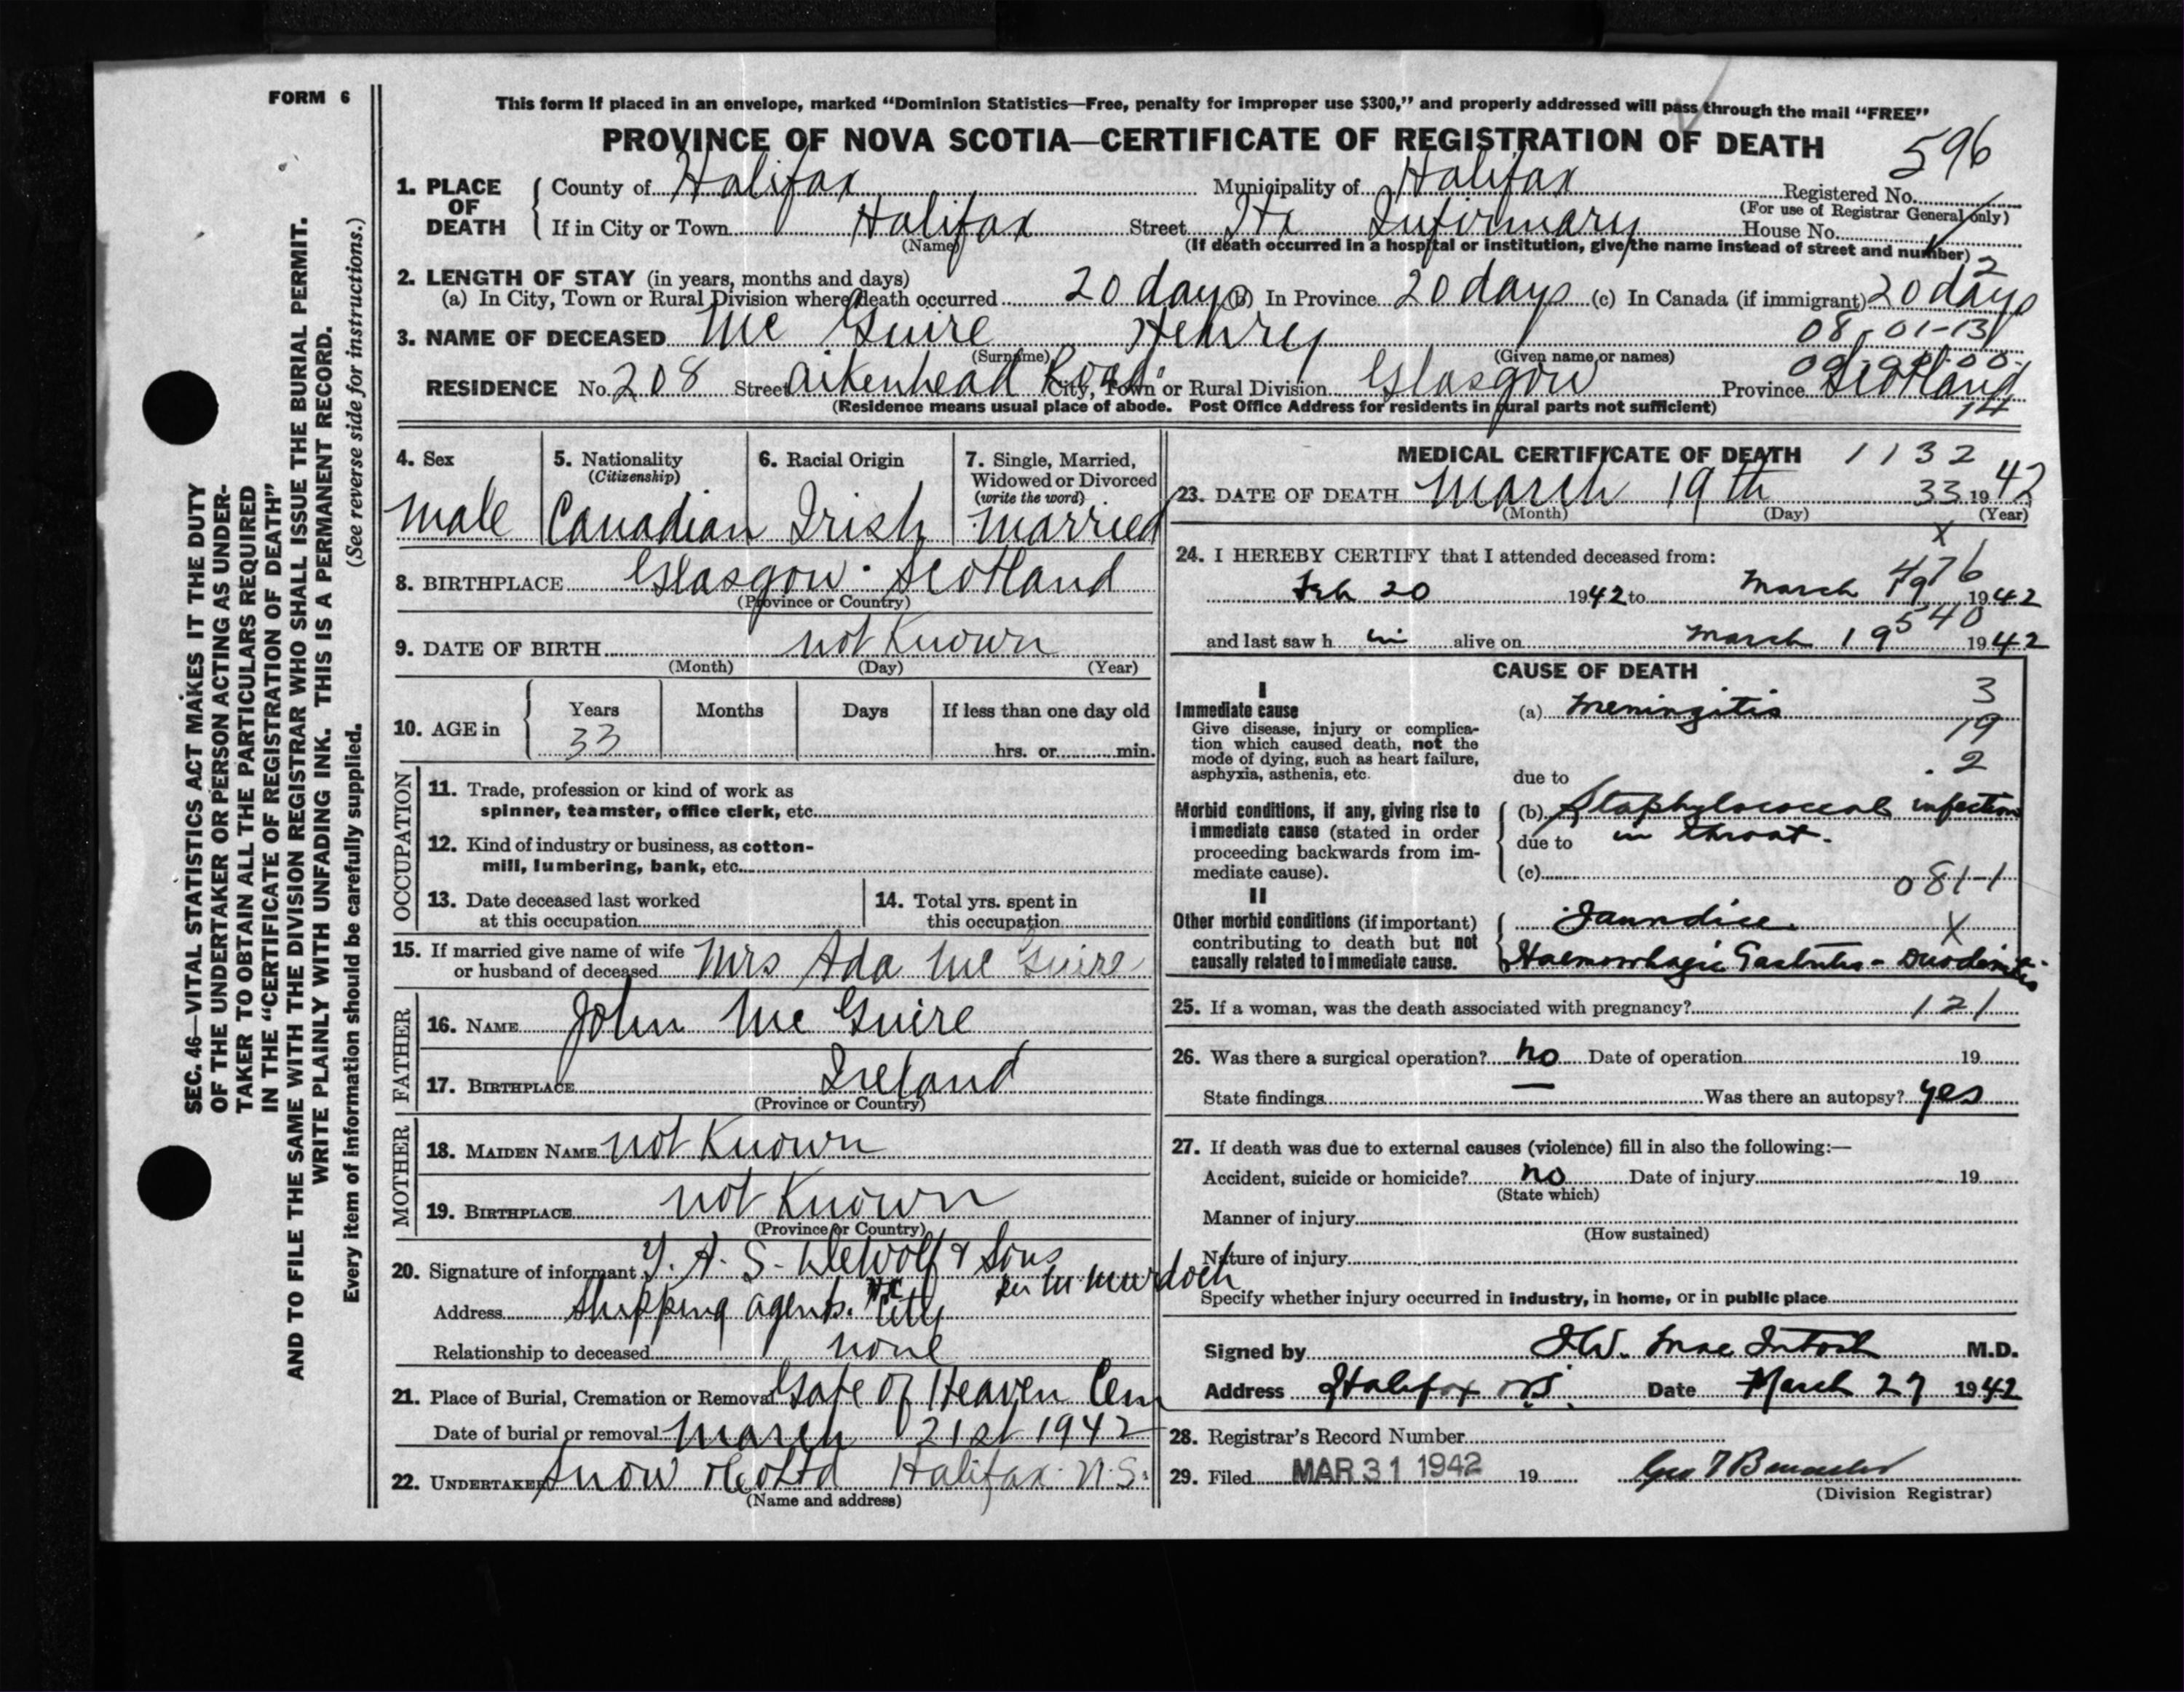 FORM 6
This form if placed in an envelope, marked "Dominion Statistics—Free, penalty for improper use $300," and properly addressed will pass through the mail "FREE"
PROVINCE OF NOVA SCOTIA—CERTIFICATE OF REGISTRATION OF DEATH
596
1. PLACE OF DEATH
County of Halifax Municipality of Halifax Registered No.
(For use of Registrar General only)
If in City or Town Halifax Street Hx Infirmary House No.
(Name) (If death occurred in a hospital or institution, give the name instead of street and number)
2
2. LENGTH OF STAY (in years, months and days)
(a) In City, Town or Rural Division where death occurred 20 days (b) In Province 20 days (c) In Canada (if immigrant) 20 days
08-01-13
3. NAME OF DECEASED Mc Guire Henry
(Surname) (Given name or names)
RESIDENCE No. 208 Street Aikenhead Road City, Town or Rural Division Glasgow Province Scotland
(Residence means usual place of abode. Post Office Address for residents in rural parts not sufficient)
14
4. Sex
male
5. Nationality
(Citizenship)
Canadian
6. Racial Origin
Irish
7. Single, Married,
Widowed or Divorced
(write the word)
married
8. BIRTHPLACE Glasgow. Scotland
(Province or Country)
9. DATE OF BIRTH not Known
(Month) (Day) (Year)
10. AGE in
Years Months Days If less than one day old
33 hrs. or min.
OCCUPATION
11. Trade, profession or kind of work as
spinner, teamster, office clerk, etc.
12. Kind of industry or business, as cotton-
mill, lumbering, bank, etc.
13. Date deceased last worked
at this occupation
14. Total yrs. spent in
this occupation
15. If married give name of wife
or husband of deceased Mrs Ada Mc Guire
FATHER
16. NAME John Mc Guire
17. BIRTHPLACE Ireland
(Province or Country)
MOTHER
18. MAIDEN NAME not Known
19. BIRTHPLACE not Known
(Province or Country)
20. Signature of informant T. A. S. DeWolf & Sons
per M Murdoch
Address Shipping agents. City
Relationship to deceased none
21. Place of Burial, Cremation or Removal Gate of Heaven Cem
Date of burial or removal March 21st 1942
22. UNDERTAKER Snow & Co Ltd Halifax. N.S.
(Name and address)
MEDICAL CERTIFICATE OF DEATH 1132
23. DATE OF DEATH March 19th 33 1942
(Month) (Day) (Year)
x
24. I HEREBY CERTIFY that I attended deceased from:
476
Feb 20 1942 to March 19 1942
540
and last saw h im alive on March 19 1942
CAUSE OF DEATH
I
Immediate cause
Give disease, injury or complica-
tion which caused death, not the
mode of dying, such as heart failure,
asphyxia, asthenia, etc.
(a) Meningitis
3
19
2
due to
Morbid conditions, if any, giving rise to
immediate cause (stated in order
proceeding backwards from im-
mediate cause).
(b) Staphylococcal infection
due to in throat.
(c)
081-1
II
Other morbid conditions (if important)
contributing to death but not
causally related to immediate cause.
Jaundice.
X
Haemorrhagic Gastritis - Duodenitis
25. If a woman, was the death associated with pregnancy? 121
26. Was there a surgical operation? no Date of operation 19
State findings — Was there an autopsy? yes
27. If death was due to external causes (violence) fill in also the following:—
Accident, suicide or homicide? no Date of injury 19
(State which)
Manner of injury
(How sustained)
Nature of injury
Specify whether injury occurred in industry, in home, or in public place
Signed by H.W. Mac Intosh M.D.
Address Halifax N.S. Date March 27 1942
28. Registrar's Record Number
29. Filed MAR 31 1942 19
(Division Registrar)
SEC. 46—VITAL STATISTICS ACT MAKES IT THE DUTY
OF THE UNDERTAKER OR PERSON ACTING AS UNDER-
TAKER TO OBTAIN ALL THE PARTICULARS REQUIRED
IN THE "CERTIFICATE OF REGISTRATION OF DEATH"
AND TO FILE THE SAME WITH THE DIVISION REGISTRAR WHO SHALL ISSUE THE BURIAL PERMIT.
WRITE PLAINLY WITH UNFADING INK. THIS IS A PERMANENT RECORD.
Every item of information should be carefully supplied. (See reverse side for instructions.)